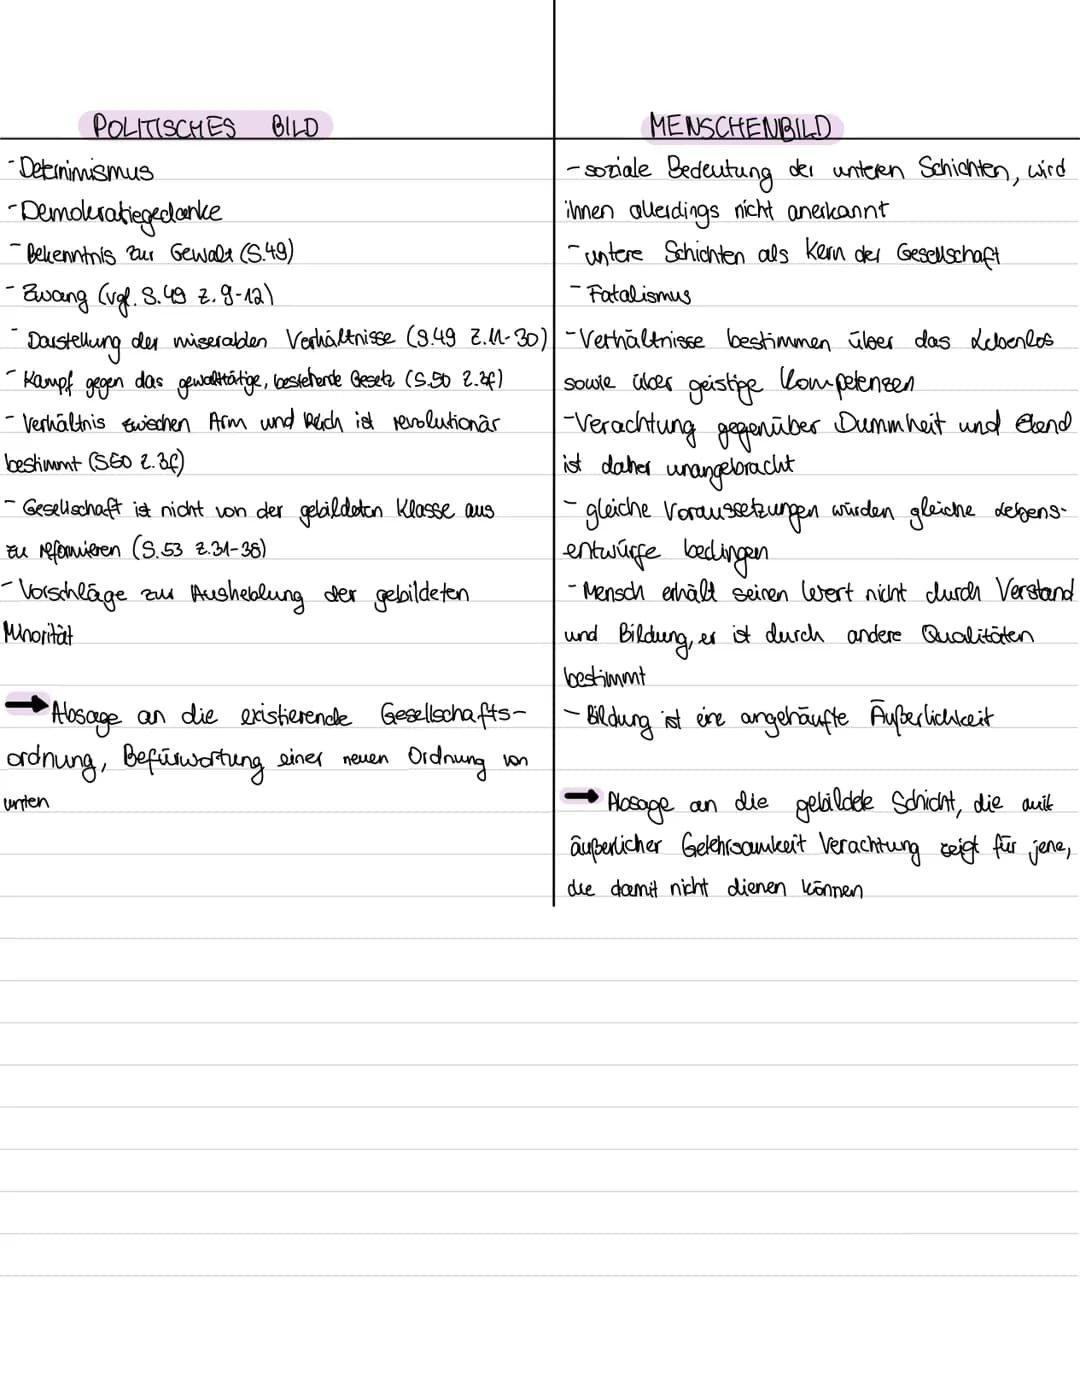 POLITISCHES BILD
- Determinismus
- Demokratiegedanke
- Bekenntnis zur Gewalt (S.49)
- Zwang (vgl. S.49 Z.9-12)
- Darstellung der miserablen Verhältnisse (S.49 Z.11-30)
- Kampf gegen das gewalttätige, bestehende Gesetz (S.50 Z.3f)
- Verhältnis zwischen Arm und Reich ist revolutionär
bestimmt (S.60 Z.3f)
- Gesellschaft ist nicht von der gebildeten Klasse aus
zu reformieren (S.53 Z.31-38)
- Vorschläge zur Ausheblung der gebildeten
Minorität
→ Absage an die existierende Gesellschafts-
ordnung, Befürwortung einer neuen Ordnung von
unten
MENSCHENBILD
- soziale Bedeutung der unteren Schichten, wird
ihnen allerdings nicht anerkannt
- untere Schichten als Kern der Gesellschaft
- Fatalismus
- Verhältnisse bestimmen über das Lebenlos
sowie über geistige Kompetenzen
- Verachtung gegenüber Dummheit und Elend
ist daher unangebracht
- gleiche Voraussetzungen würden gleiche Lebens-
entwürfe bedingen
- Mensch erhält seinen Wert nicht durch Verstand
und Bildung, er ist durch andere Qualitäten
bestimmt
- Bildung ist eine angehäufte Äußerlichkeit
→ Absage an die gebildete Schicht, die mit
äußerlicher Gelehrsamkeit Verachtung zeigt für jene,
die damit nicht dienen können